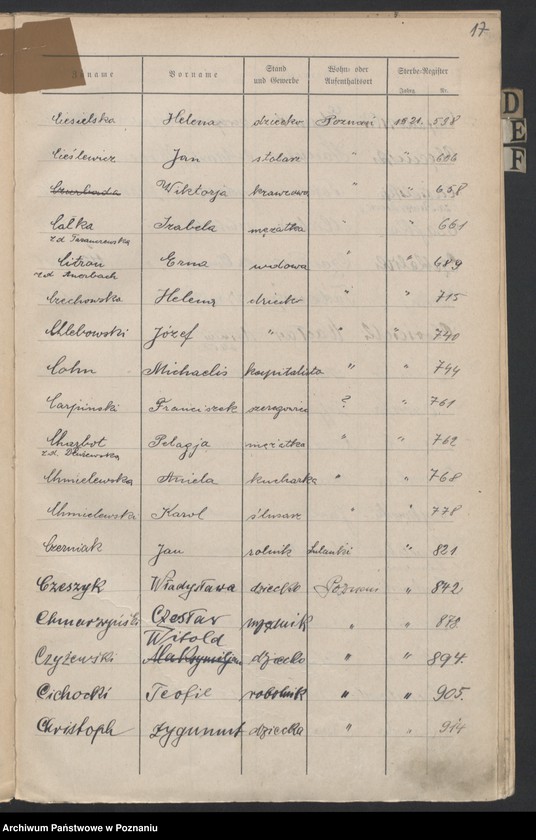 17
Stand Wohn- oder Sterbe-Register
Zuname Vorname und Gewerbe Aufenthaltsort Jahrg. Nr.
Ciesielska Helena dziecko Poznań 1921. 598
Cieślewicz Jan stolarz " " 606
Wiktorja krawcowa " " 658
Calka Izabela mężatka " " 661
z d.
Citron Erna wdowa " " 689
z d. Auerbach
Czechowska Helena dziecko " " 715
Chlebowski Józef " " " 740
Cohn Michaelis kapitalista " " 744
Carpinski Franciszek szeregowiec ? " 761
Charbot Pelagja mężatka " " 762
z d.
Chmielewska Aniela kucharka " " 768
Chmielewska Karol ślusarz " " 778
Czerniak Jan rolnik " 821
Czeszyk Władysława dziecko Poznań " 842
Chmarzyński Czesław " " 878
Witold
Czyżewski Maksymiljan dziecko " " 894.
Cichocki Teofil robotnik " " 905.
Christoph Zygmunt dziecko " " 914
D
E
F
Archiwum Państwowe w Poznaniu